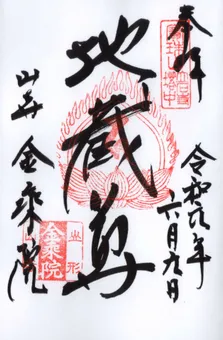 奉拝
令和元年
六月九日
地蔵尊
山寺
金乗院
山形
金乗院